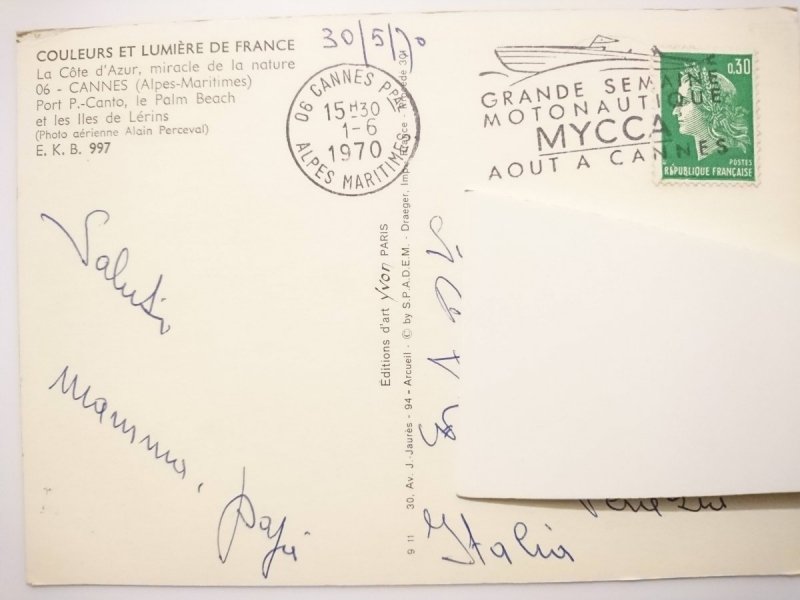 COULEURS ET LUMIÈRE DE FRANCE
La Côte d'Azur, miracle de la nature
06 - CANNES (Alpes-Maritimes)
Port P.-Canto, le Palm Beach
et les Iles de Lérins
(Photo aérienne Alain Perceval)
E. K. B. 997
30/5/70
06 CANNES PPAL
15H30
1-6
1970
ALPES MARITIMES
GRANDE SEMAINE
MOTONAUTIQUE
MYCCA
AOUT A CANNES
0,30
POSTES
RÉPUBLIQUE FRANÇAISE
Saluti
mamma, papà
Editions d'art Yvon PARIS
9 11 30, Av. J.-Jaurès - 94 - Arcueil - © by S.P.A.D.E.M. - Draeger, Imp. France
Italia